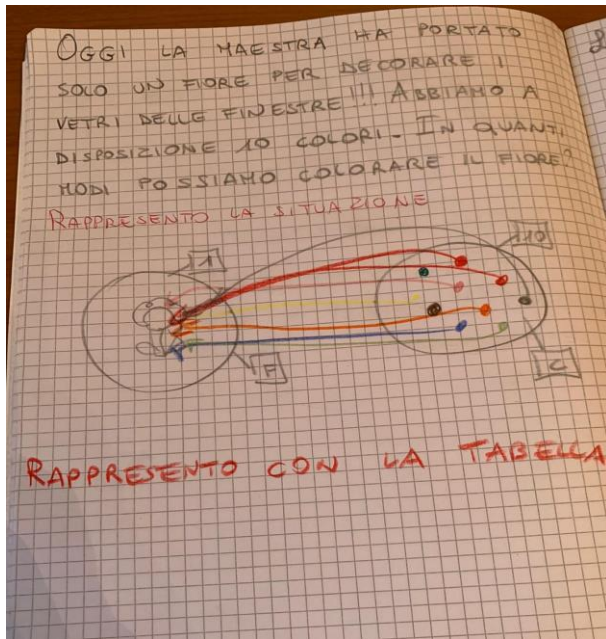 OGGI LA MAESTRA HA PORTATO
SOLO UN FIORE PER DECORARE I
VETRI DELLE FINESTRE!!! ABBIAMO A
DISPOSIZIONE 10 COLORI. IN QUANTI
MODI POSSIAMO COLORARE IL FIORE?
RAPPRESENTO LA SITUAZIONE
1
F
C
RAPPRESENTO CON LA TABELLA